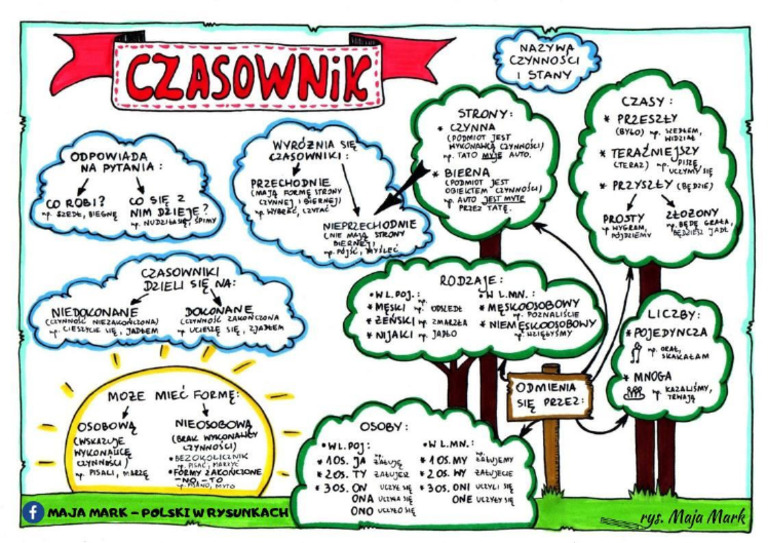 CZASOWNIK
NAZYWA
CZYNNOŚCI
I STANY
ODPOWIADA
NA PYTANIA:
CO ROBI?
np. SZEDŁ, BIEGNĘ
CO SIĘ Z
NIM DZIEJE?
np. NUDZILI SIĘ, ŚPIMY
WYRÓŻNIA SIĘ
CZASOWNIKI:
PRZECHODNIE
(MAJĄ FORMĘ STRONY
CZYNNEJ I BIERNEJ)
np. WYBRAĆ, CZYTAĆ
NIEPRZECHODNIE
(NIE MAJĄ STRONY
BIERNEJ)
np. PÓJŚĆ, MYŚLEĆ
STRONY:
* CZYNNA
(PODMIOT JEST
WYKONAWCĄ CZYNNOŚCI)
np. TATO MYJE AUTO.
* BIERNA
(PODMIOT JEST
OBIEKTEM CZYNNOŚCI)
np. AUTO JEST MYTE
PRZEZ TATĘ.
CZASY:
* PRZESZŁY
(BYŁO) np. WSZEDŁEM,
WIDZIAŁ
* TERAŹNIEJSZY
(TERAZ) np. PISZĘ,
UCZYMY SIĘ
* PRZYSZŁY (BĘDZIE)
PROSTY
np. WYGRAM,
PÓJDZIEMY
ZŁOŻONY
np. BĘDĘ GRAŁA,
BĘDZIESZ JADŁ
CZASOWNIKI
DZIELI SIĘ NA:
NIEDOKONANE
(CZYNNOŚĆ NIEZAKOŃCZONA)
np. CIESZYCIE SIĘ, JADŁEM
DOKONANE
(CZYNNOŚĆ ZAKOŃCZONA)
np. UCIESZĘ SIĘ, ZJADŁEM
RODZAJE:
* W L.POJ.: np.
* MĘSKI np. ODSZEDŁ
* ŻEŃSKI np. ZMARZŁA
* NIJAKI np. JADŁO
* W L.MN.:
* MĘSKOOSOBOWY
np. POZNALIŚCIE
* NIEMĘSKOOSOBOWY
np. WZIĘŁYŚMY
LICZBY:
* POJEDYNCZA
np. ORAŁ,
SKAKAŁAM
* MNOGA
np. KAZALIŚMY,
TRWAJĄ
ODMIENIA
SIĘ PRZEZ:
MOŻE MIEĆ FORMĘ:
OSOBOWĄ
(WSKAZUJE
WYKONAWCĘ
CZYNNOŚCI)
np. PISALI, MARZĘ
NIEOSOBOWĄ
(BRAK WYKONAWCY
CZYNNOŚCI)
* BEZOKOLICZNIK
np. PISAĆ, MARZYĆ
* FORMY ZAKOŃCZONE
-NO, -TO
np. PISANO, MYTO
OSOBY:
* W L.POJ:
* 1 OS. JA ŻAŁUJĘ
* 2 OS. TY ŻAŁUJESZ
* 3 OS. ON UCZYŁ SIĘ
ONA UCZYŁA SIĘ
ONO UCZYŁO SIĘ
* W L.MN.:
* 1 OS. MY ŻAŁUJEMY
* 2 OS. WY ŻAŁUJECIE
* 3 OS. ONI UCZYLI SIĘ
ONE UCZYŁY SIĘ
MAJA MARK - POLSKI W RYSUNKACH
rys. Maja Mark